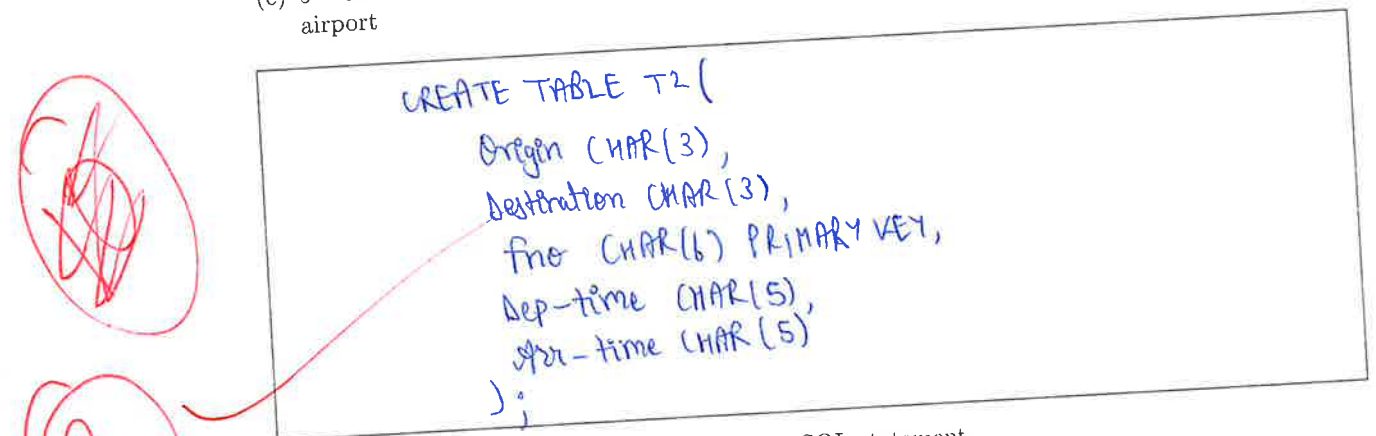 airport
CREATE TABLE T2(
Origin CHAR(3),
Destination CHAR(3),
fno CHAR(6) PRIMARY KEY,
Dep-time CHAR(5),
Arr-time CHAR(5)
);
SQL statement